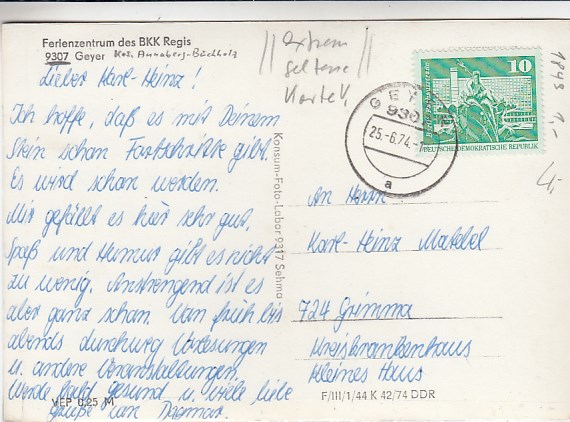 Ferienzentrum des BKK Regis
9307 Geyer Krs. Annaberg-Buchholz
Lieber Karl-Heinz!
Ich hoffe, daß es mit Deinem
Stein schon Fortschritte gibt.
Es wird schon werden.
Mir gefällt es hier sehr gut,
Spaß und Humor gibt es nicht
zu wenig. Anstrengend ist es
aber ganz schön. Von früh bis
abends durchweg Vorlesungen
u. andere Veranstaltungen.
Werde bald gesund u. viele liebe
Grüße von Dagmar.
VEP 0,25 M
Konsum-Foto-Labor 9317 Sehma
// extrem //
seltene
Karte!
GEYER
930
25.-6.74.-
a
10
DEUTSCHE DEMOKRATISCHE REPUBLIK
1,-
An Herrn
Karl-Heinz
724 Grimma
Kreiskrankenhaus
Kleines Haus
F/III/1/44 K 42/74 DDR